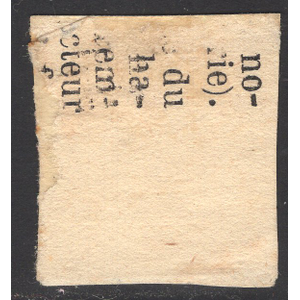 no-
ie).
du
ha-
em-
cteur